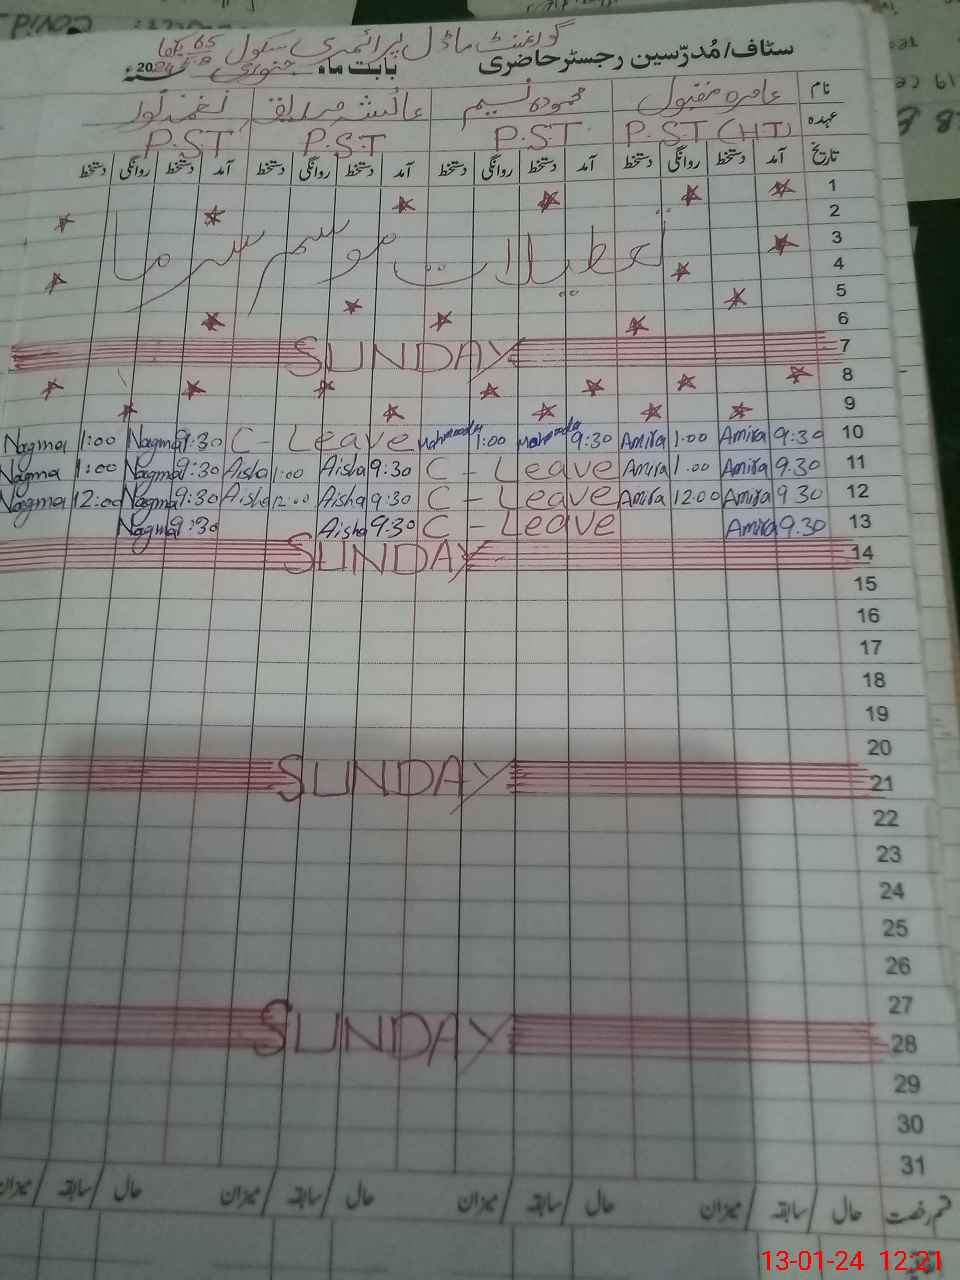 گورنمنٹ ماڈل پرائمری سکول 65
سٹاف/مُدرّسین رجسٹر حاضری بابت ماہ جنوری 2024ء
نام عامرہ مقبول محمودہ نسیم عائشہ صدیق
عہدہ P.ST (HT) P.ST P.ST P.ST
تاریخ آمد دستخط روانگی دستخط آمد دستخط روانگی دستخط آمد دستخط روانگی دستخط آمد دستخط روانگی دستخط
1
2
تعطیلات موسم سرما
3
4
5
6
SUNDAY 7
8
9
Nagma 1:00 Nagma 9:30 C - Leave Mahmooda 1:00 Mahmooda 9:30 Amira 1.00 Amira 9:30 10
Nagma 1:00 Nagma 9:30 Aisha 1:00 Aisha 9:30 C - Leave Amira 1.00 Amira 9.30 11
Nagma 12:00 Nagma 9:30 Aisha 12:00 Aisha 9:30 C - Leave Amira 12:00 Amira 9 30 12
Nagma 9:30 Aisha 9:30 C - Leave Amira 9.30 13
SUNDAY 14
15
16
17
18
19
20
SUNDAY 21
22
23
24
25
26
27
SUNDAY 28
29
30
31
قسم رخصت حال سابقہ میزان حال سابقہ میزان حال سابقہ میزان حال سابقہ میزان
13-01-24 12:21